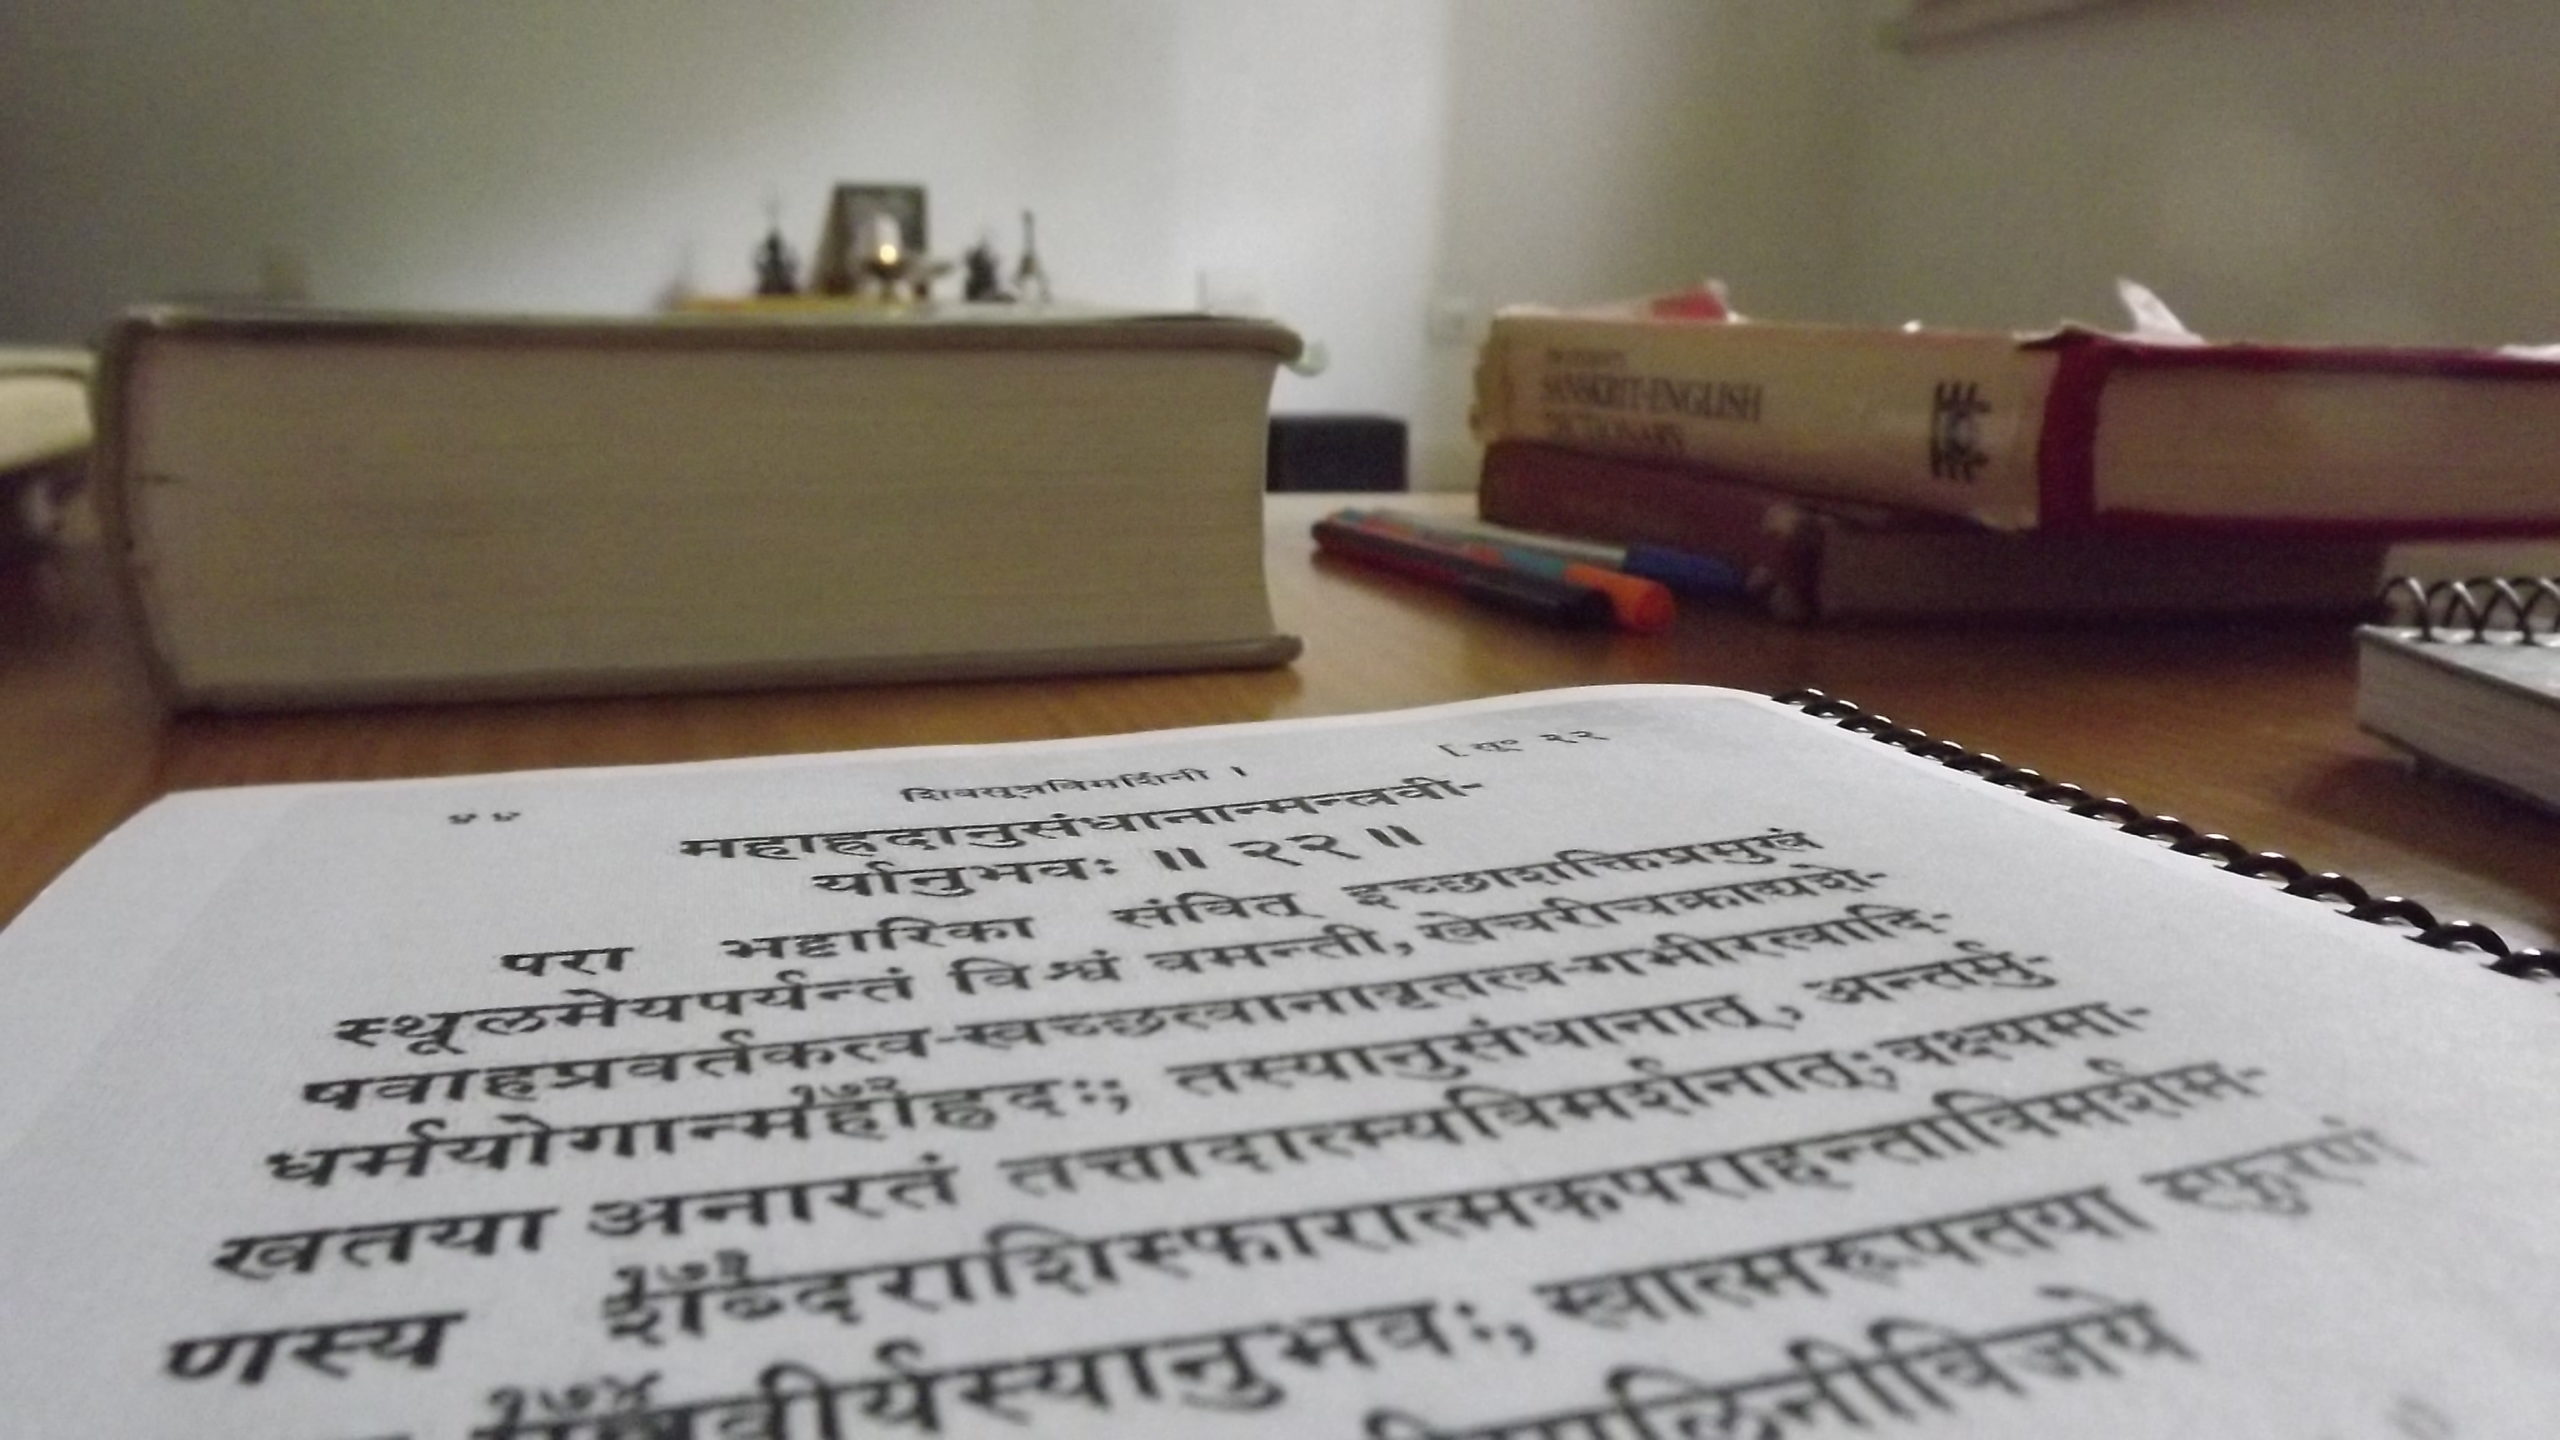 SANSKRIT-ENGLISH
DICTIONARY
४४ शिवसूत्रविमर्शिनी । [ सू० २२
महाह्रदानुसंधानान्मन्त्रवी-
र्यानुभवः ॥ २२ ॥
परा भट्टारिका संवित् इच्छाशक्तिप्रमुखं
स्थूलमेयपर्यन्तं विश्वं वमन्ती, खेचरीचक्राद्यशे-
षवाहप्रवर्तकत्व-स्वच्छत्वानावृतत्व-गभीरत्वादि-
धर्मयोगान्महाह्रदः; तस्यानुसंधानात्, अन्तर्मु-
१७२
खतया अनारतं तत्तादात्म्यविमर्शनात्; वक्ष्यमा-
णस्य शब्दराशिस्फारात्मकपराहन्ताविमर्शम-
१७३
मन्त्रवीर्यस्यानुभवः; स्वात्मरूपतया स्फुरणं
१७४
मालिनीविजये